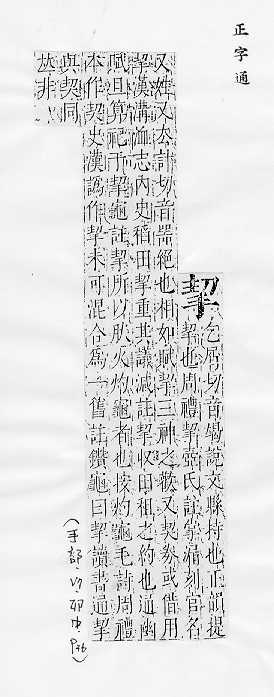 正字通
挈
乞屑切音鍥說文縣持也正韻提
挈也周禮挈壺氏註掌漏刻官名
又姓又本計切音器絕也相如賦挈三神之歡又契券或借用
挈漢溝洫志內史稻田挈重其議減註挈收田租之約也通幽
賦旦算祀于挈龜註挈所以㸐火灼龜者也按灼龜毛詩周禮
本作契史漢譌作挈未可混合爲一舊註鑽龜曰挈讀書通挈
與契同
𠀤非